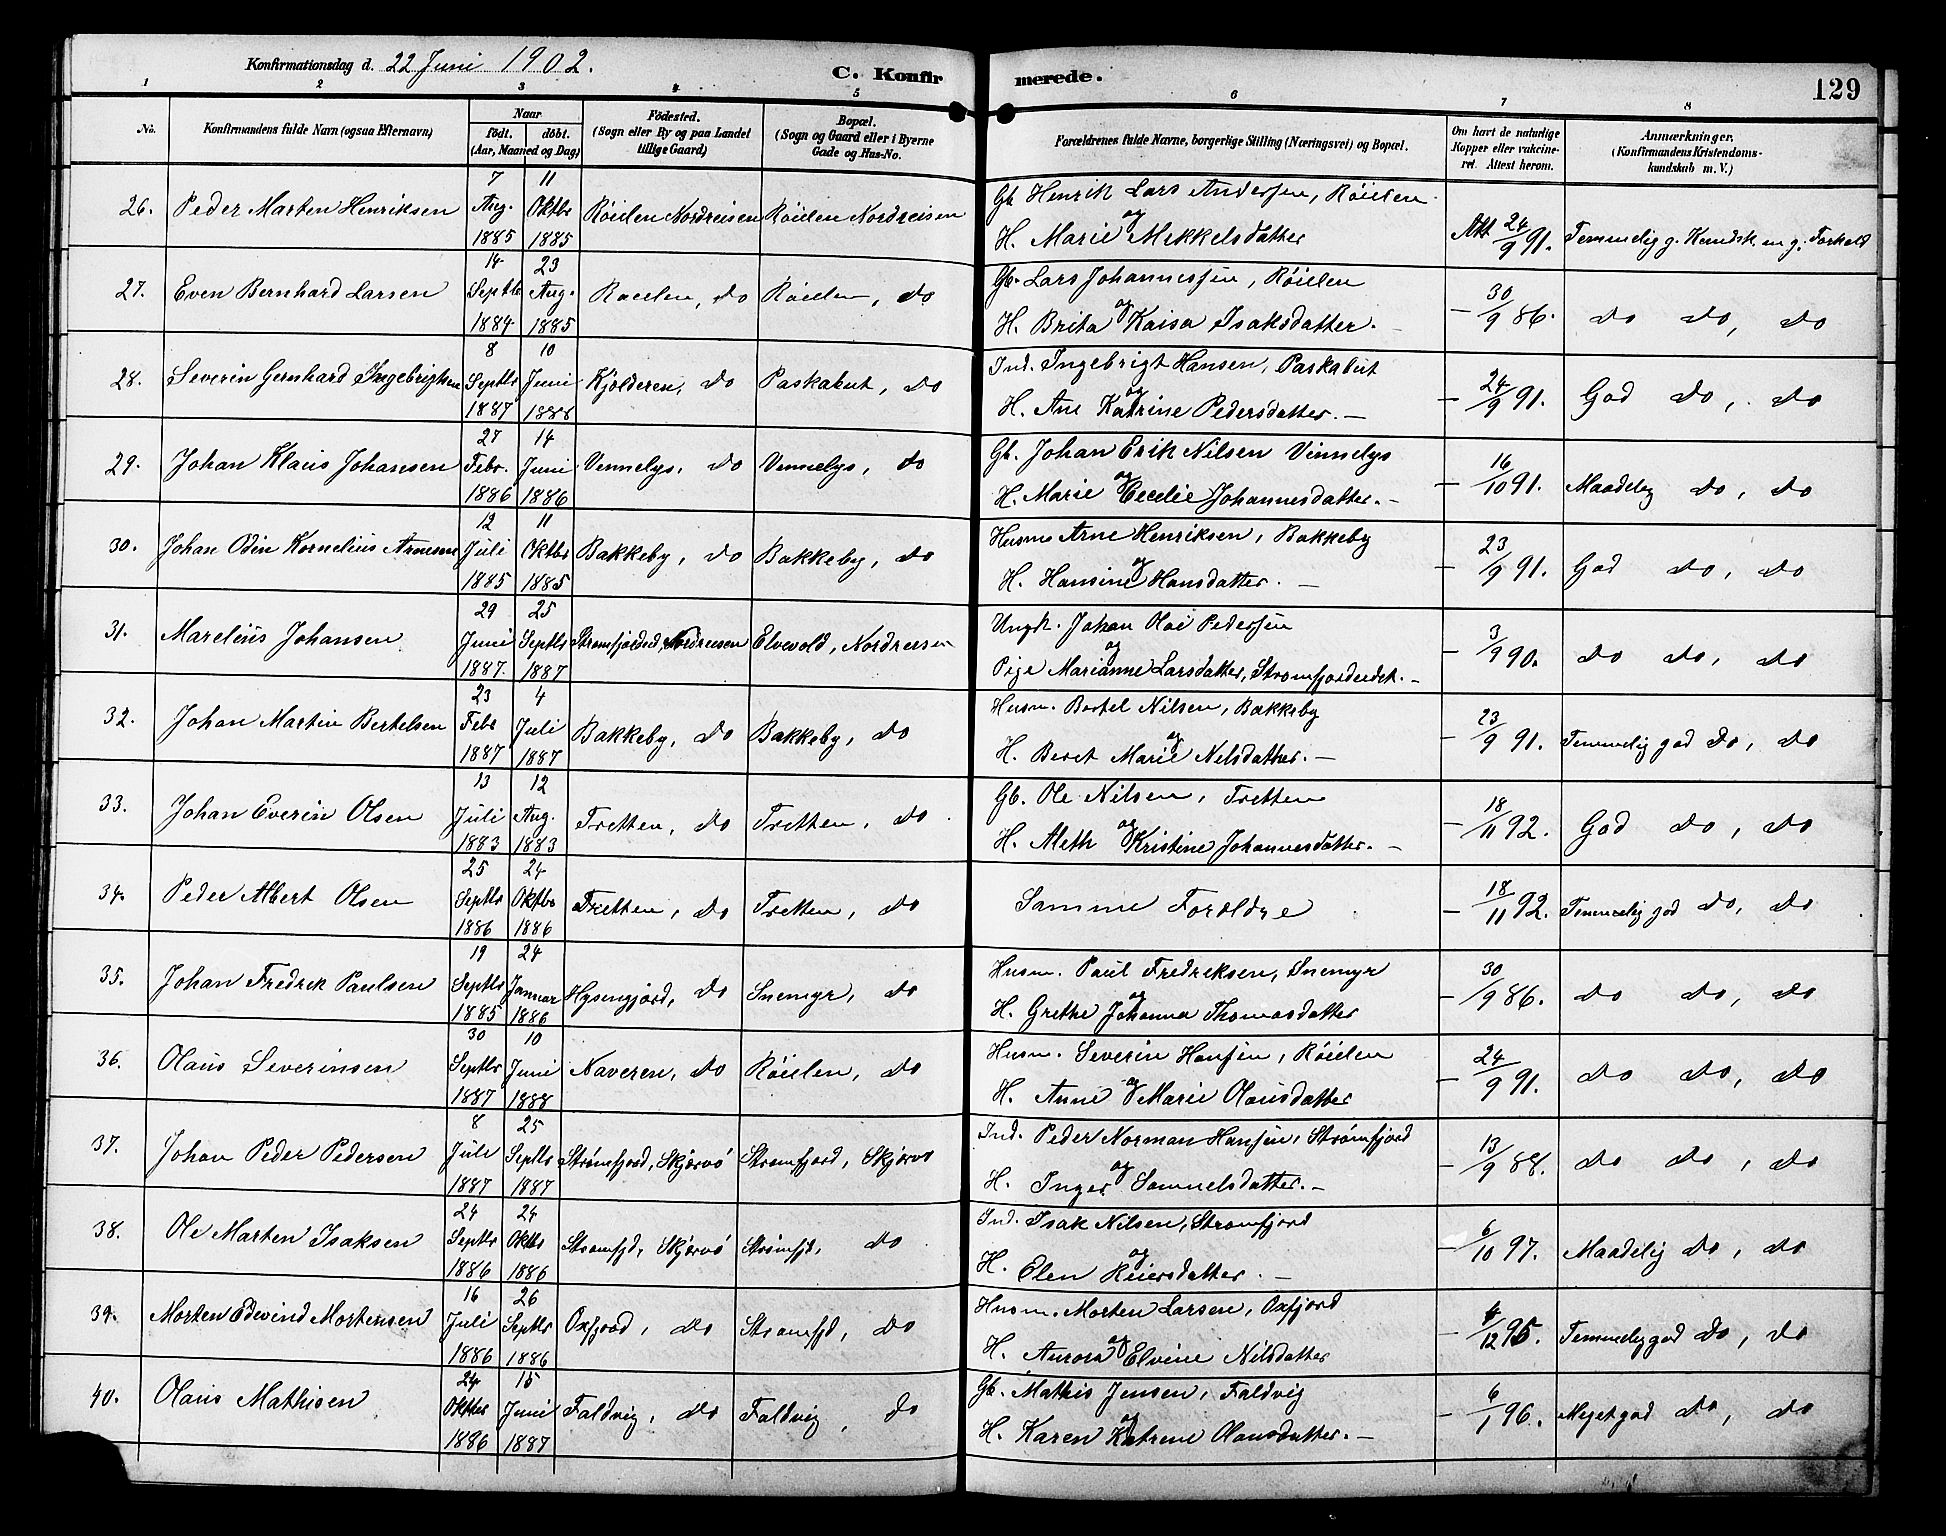 Konfirmationsdag d. 22 Juni 1902.
C. Konfirmerede.
129
1 2 3 4 5 6 7 8
No.
Konfirmandens fulde Navn (ogsaa Efternavn)
Naar
födt. döbt.
(Aar, Maaned og Dag)
Födested.
(Sogn eller By og paa Landet
tillige Gaard)
Bopæl.
(Sogn og Gaard eller i Byerne
Gade og Hus-No.
Forældrenes fulde Navne, borgerlige Stilling (Næringsvei) og Bopæl.
Om havt de naturlige
Kopper eller vakcine-
ret. Attest herom.
Anmærkninger.
(Konfirmandens Kristendoms-
kundskab m. V.)
26. Peder Marten Henriksen 7 Aug. 1885 11 Oktbr 1885 Röielen Nordreisen Röielen Nordreisen Gb. Henrik Lars Andersen, Röielen
og
H. Marie Mikkelsdatter Att 24/9 91. Temmelig g. Kundsk. en g. Forhold
27. Even Bernhard Larsen 14 Septbr 1884 23 Aug. 1885 Röielen, do Röielen, do Gb. Lars Johannessen, Röielen
og
H. Brita Kaisa Isaksdatter. — – 30/9 86. do do, do
28. Severin Gernhard Ingebrigtsen 8 Septbr 1887 10 Juni 1888 Kjolderen, do Paskabut, do Ind. Ingebrigt Hansen, Paskabut
og
H. Ane Katrine Pedersdatter. — – 24/9 91. God do, do
29. Johan Klaus Johansen 27 Febr. 1886 14 Juni 1886 Vinnelys, do Vinnelys, do Gb. Johan Erik Nilsen Vinnelys
og
H. Marie Cecelie Johannesdatter. — – 16/10 91. Maadelig do, do
30. Johan Odin Kornelius Arnesen 12 Juli 1885 11 Oktbr 1885 Bakkeby, do Bakkeby, do Husm. Arne Henriksen, Bakkeby
og
H. Hansine Hansdatter. — – 23/9 91. God do, do
31. Marelius Johansen 29 Juni 1887. 25 Septbr 1887 Strømfjorded, Nordreisen Elvevold, Nordreisen Ungk. Johan Olai Pedersen
og
Pige Marianne Larsdatter, Strømfjordeidet. — – 3/9 90. do do, do
32. Johan Martin Bertelsen 23 Febr 1887 4 Juli 1887 Bakkeby, do Bakkeby, do Husm. Bertel Nilsen, Bakkeby
og
H. Beret Marie Nilsdatter. — – 23/9 91. Temmelig god do, do
33. Johan Everin Olsen 13 Juli 1883 12 Aug. 1883 Tretten, do Tretten, do Gb. Ole Nilsen, Tretten
og
H. Aleth Kristine Johannesdatter. — – 18/11 92. God do, do
34. Peder Albert Olsen 25 Septbr 1886 24 Oktbr 1886 Tretten, do Tretten, do Samme Forældre – 18/11 92. Temmelig god do, do
35. Johan Fredrik Paulsen 19 Septbr 1885 24 Januar 1886 Hysingjord, do Snemyr, do Husm. Paul Fredriksen, Snemyr
og
H. Grethe Johanna Thomasdatter – 30/9 86. do do, do
36. Olaus Severinsen 30 Septbr 1887 10 Juni 1888 Naveren, do Röielen, do Husm. Severin Hansen, Röielen
og
H. Anne Marie Olausdatter – 24/9 91. do do, do
37. Johan Peder Pedersen 8 Juli 1887 25 Septbr 1887 Strømfjord, Skjervö Strømfjord, Skjervö Ind. Peder Norman Hansen, Strømfjord
og
H. Inger Samuelsdatter. — – 13/9 88. do do, do
38. Ole Marten Isaksen 24 Septbr 1886 24 Oktbr 1886 Strømfjd, Skjervö Strømfjd, do Ind. Isak Nilsen, Strømfjord
og
H. Elen Reiersdatter. — – 6/10 97. Maadelig do, do
39. Morten Edevind Mortensen 16 Juli 1886 26 Septbr 1886 Oxfjord, do Strømfjd, do Husm. Morten Larsen, Oxfjord
og
H. Aurora Elvine Nilsdatter – 4/12 95. Temmelig god do, do
40. Olaus Mathisen 24 Oktbr 1886 15 Juni 1887 Faldvig, do Faldvig, do Gb. Mathis Jensen, Faldvig
og
H. Karen Katrine Olausdatter. — – 6/1 96. Meget god do, do